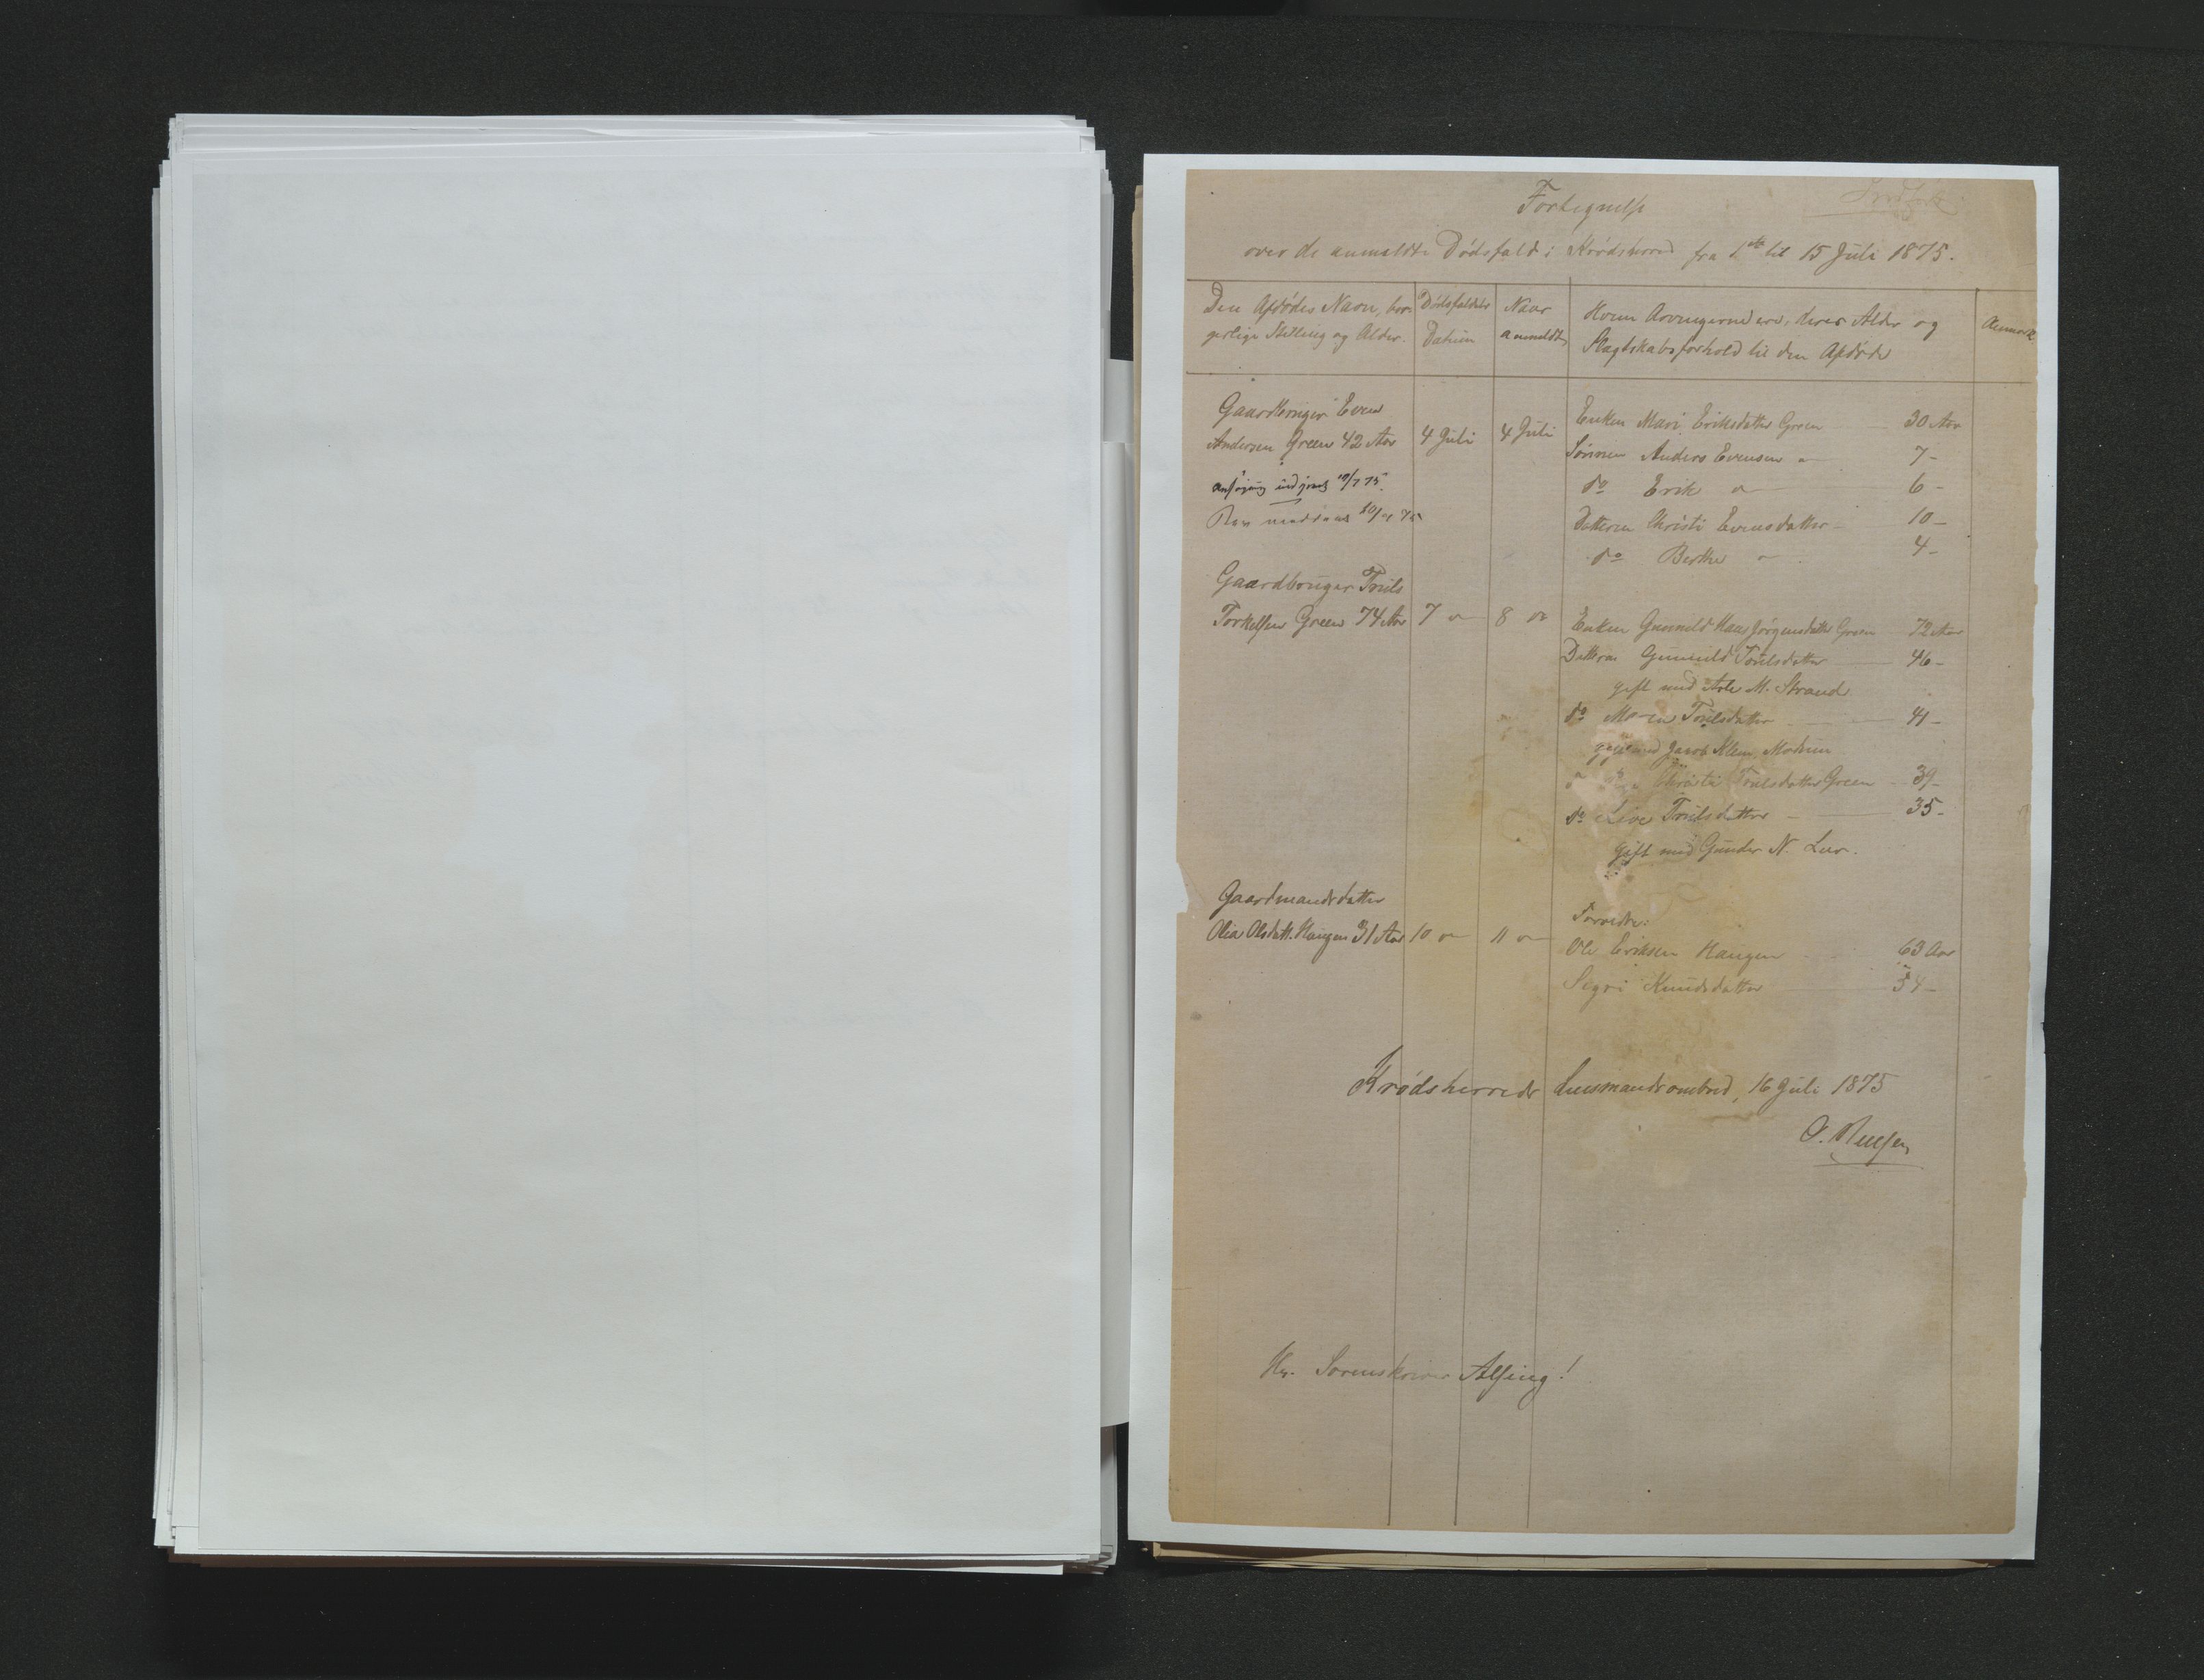 Fortegnelse
over de anmeldte Dødsfald i Krødsherred fra 1ste til 15 Juli 1875.
Den Afdødes Navn, bor-
gerlige Stilling og Alder.
Dødsfaldets
Datum
Naar
anmeldt
Hvem Arvingerne ere, deres Alder og
Slægtskabsforhold til den Afdøde
Anmærk.
Gaardbruger Even
Andersen Green 42 Aar 4 Juli 4 Juli
Enken Mari Eriksdatter Green 30 Aar
Sønnen Anders Evensen " 7 -
do Erik " 6 -
Datteren Christi Evensdatter - 10 -
do Berthe " 4 -
Gaardbruger Truls
Torkelsen Green 74 Aar 7 " 8 "
Enken Gunnild Hans Jørgensdatter Green 72 Aar
Datteren Gunnild Trulsdatter 46 -
gift med M. Strand
do Maren Trulsdatter 41 -
gift med Jacob Klem, Modum
Christi Trulsdatter Green 39 -
do Live Trulsdatter 35 -
gift med Gunder N.
Gaardmandsdatter
Olia Olsdatt. Haugen 31 Aar 10 " 11 "
Forældre:
Ole Eriksen Haugen 63 Aar
Sigri Knudsdatter 54 -
Krødsherreds Lensmandsombud, 16 Juli 1875
Hr. Sorenskriver Alsing!